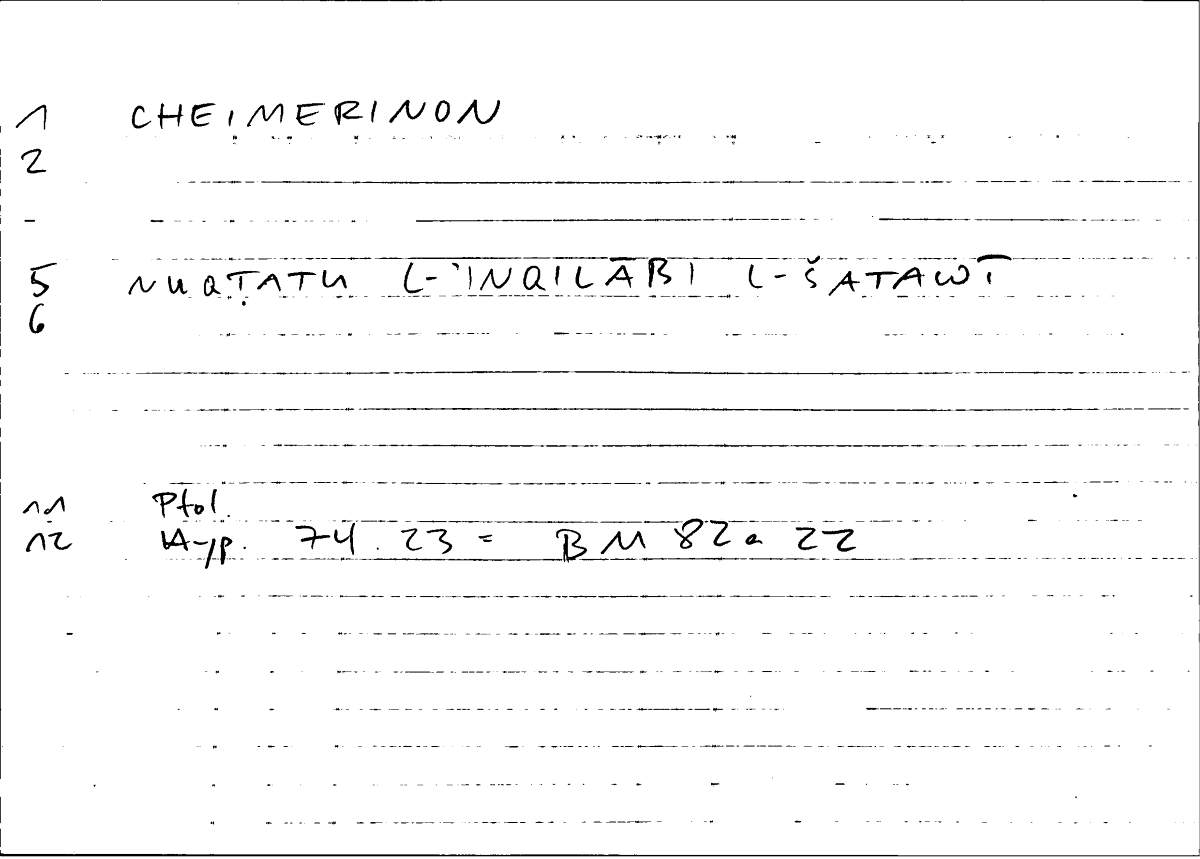 1 CHEIMERINON
2
5 NUQṬATU L-ʾINQILĀBI L-ŠATAWĪ
6
11 Ptol.
12 Hyp. 74.23 = BM 82a 22